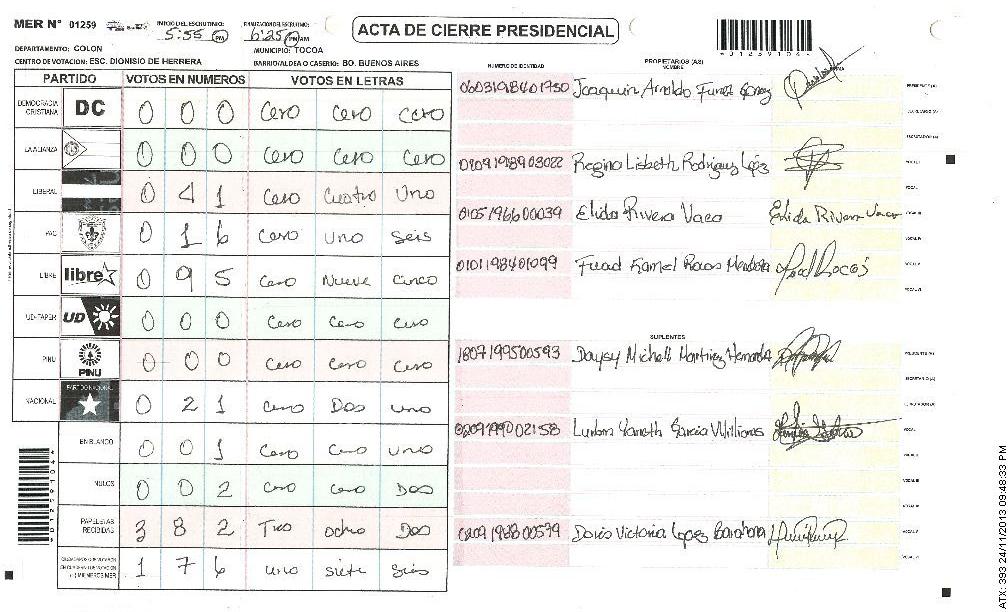 MER N° 01259
INICIO DEL ESCRUTINIO: 5:55 PM
FINALIZACION DEL ESCRUTINIO: 6:25 PM AM
ACTA DE CIERRE PRESIDENCIAL
*01259104*
DEPARTAMENTO: COLON
MUNICIPIO: TOCOA
CENTRO DE VOTACION: ESC. DIONISIO DE HERRERA
BARRIO/ALDEA O CASERIO: BO. BUENOS AIRES
PARTIDO VOTOS EN NUMEROS VOTOS EN LETRAS
DEMOCRACIA CRISTIANA DC 0 0 0 Cero Cero Cero
LA ALIANZA 0 0 0 Cero Cero Cero
LIBERAL 0 4 1 Cero Cuatro Uno
PAC 0 1 6 Cero Uno Seis
LIBRE libre 0 9 5 Cero Nueve Cinco
UD-FAPER UD 0 0 0 Cero Cero Cero
PINU PINU 0 0 0 Cero Cero Cero
NACIONAL PARTIDO NACIONAL 0 2 1 Cero Dos Uno
EN BLANCO 0 0 1 Cero Cero Uno
NULOS 0 0 2 Cero Cero Dos
PAPELETAS RECIBIDAS 3 8 2 Tres ocho Dos
1 7 6 uno siete seis
NUMERO DE IDENTIDAD
PROPIETARIOS (AS)
NOMBRE
0603198401750 Joaquin Arnoldo Funez
PRESIDENTE (A)
SECRETARIO (A)
ESCRUTADOR (A)
0209198903022 Regina Lisbeth Rodriguez López
VOCAL I
VOCAL
0105196600039 Elida Rivera Vaca Elida Rivera Vaca
VOCAL III
VOCAL IV
0101198401099
VOCAL V
VOCAL VI
SUPLENTES
1807199500593 Daysy Michell Martinez
PRESIDENTE (A)
SECRETARIO (A)
ESCRUTADOR (A)
0209199002158 Yaneth Garcia Williams
VOCAL
VOCAL II
VOCAL III
VOCAL IV
0209198800579 Doris Victoria Lopez Barahona
VOCAL V
VOCAL VI
*01259104*
ATX: 393 24/11/2013 09:48:33 PM